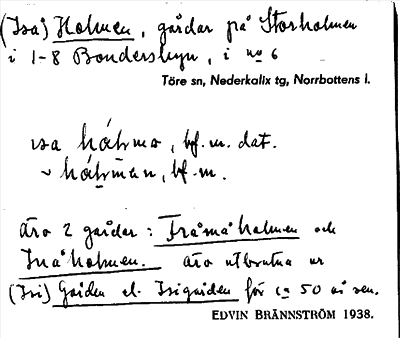 (Isa) Holmen, gårdar på Storholmen
i 1-8 Bondersbyn, i no 6
Töre sn, Nederkalix tg, Norrbottens l.
isa hólma, bf. m. dat.
~ hólman, bf. m.
äro 2 gårdar: Framåholmen och
Inåholmen. äro utbrutna ur
(Isi) Gården el. Isigården för ca 50 år sen.
EDVIN BRÄNNSTRÖM 1938.